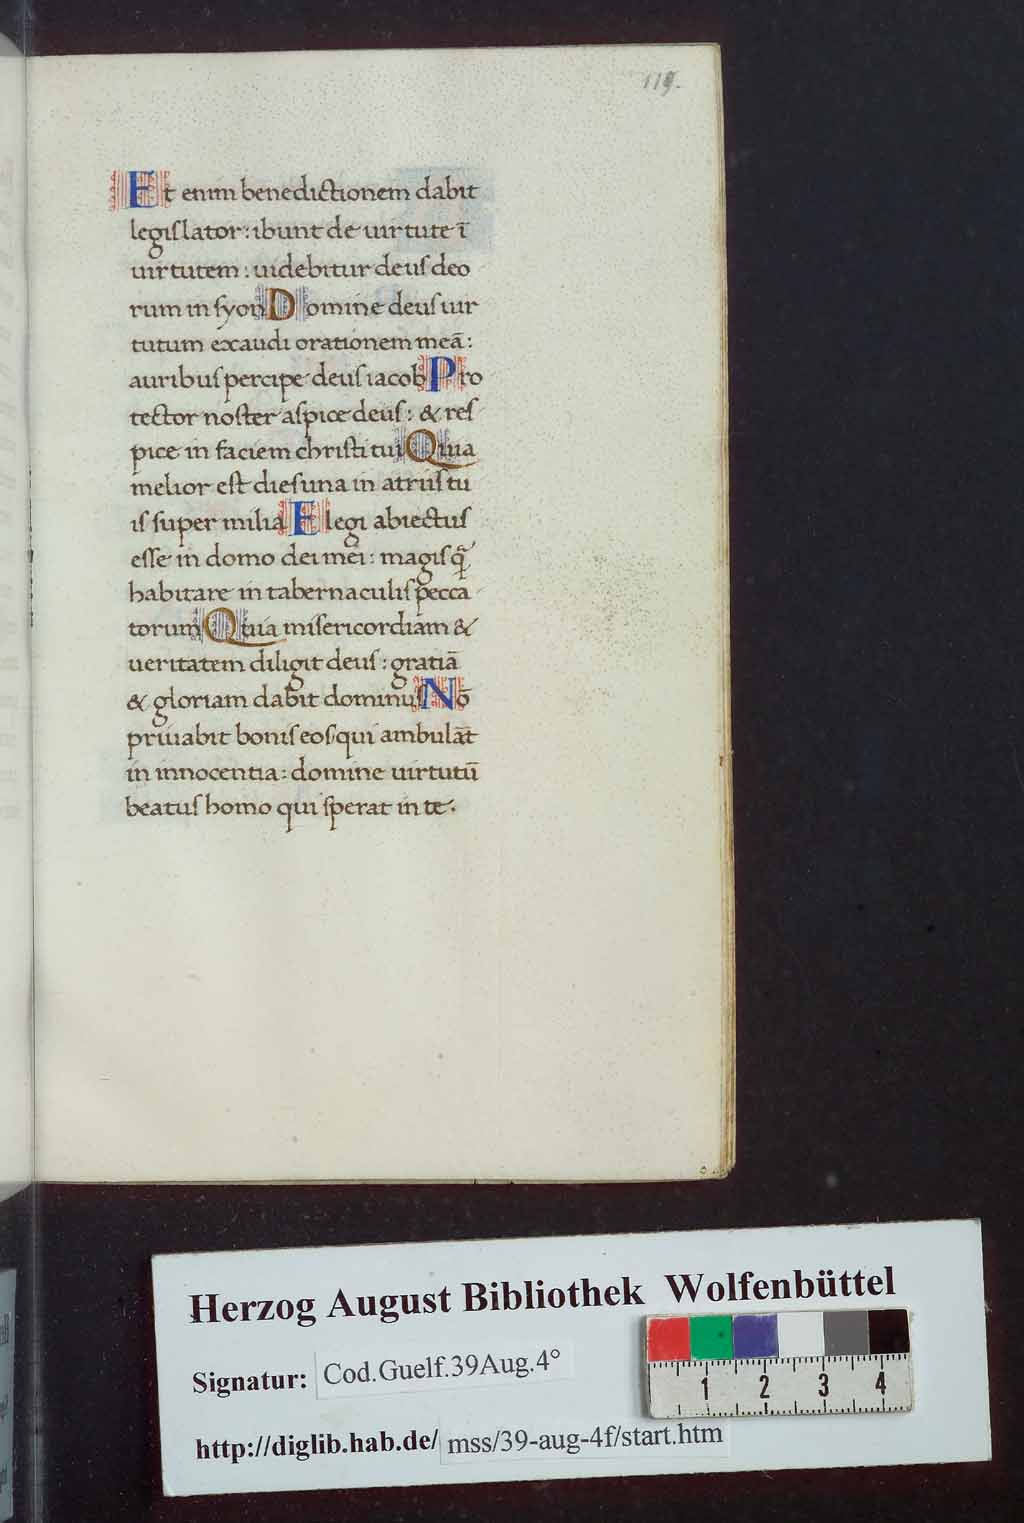 119.
Et enim benedictionem dabit
legiſlator: ibunt de uirtute ī
uirtutem: uidebitur deuſ deo
rum in ſyon Domine deuſ uir
tutum exaudi orationem meā:
auribuſ percipe deuſ iacob Pro
tector noſter aſpice deuſ: & reſ
pice in faciem chriſti tui Quia
melior eſt dieſ una in atriiſ tu
iſ ſuper milia Elegi abiectuſ
eſſe in domo dei mei: magiſ q̄
habitare in tabernaculiſ pecca
torum Quia miſericordiam &
ueritatem diligit deuſ: gratiā
& gloriam dabit dominuſ Nō
priuabit boniſ eoſ qui ambulāt
in innocentia: domine uirtutū
beatuſ homo qui ſperat in te.
Herzog August Bibliothek Wolfenbüttel
Signatur: Cod.Guelf.39Aug.4°
1 2 3 4
http://diglib.hab.de/ mss/39-aug-4f/start.htm